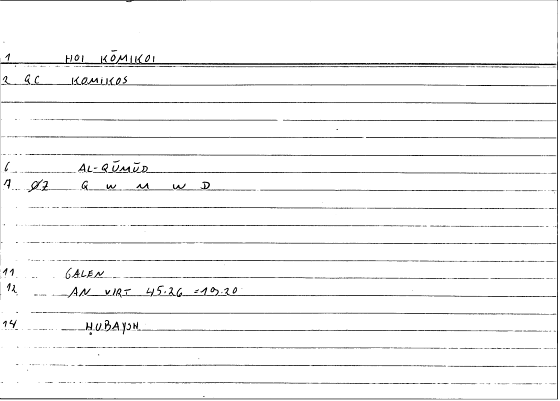 1 HOI KŌMIKOI
2 QC KOMIKOS
6 AL-QŪMŪD
7 ØZ Q W M W D
11 GALEN
12 AN VIRT 45.26 =19.20
14 ḤUBAYSH